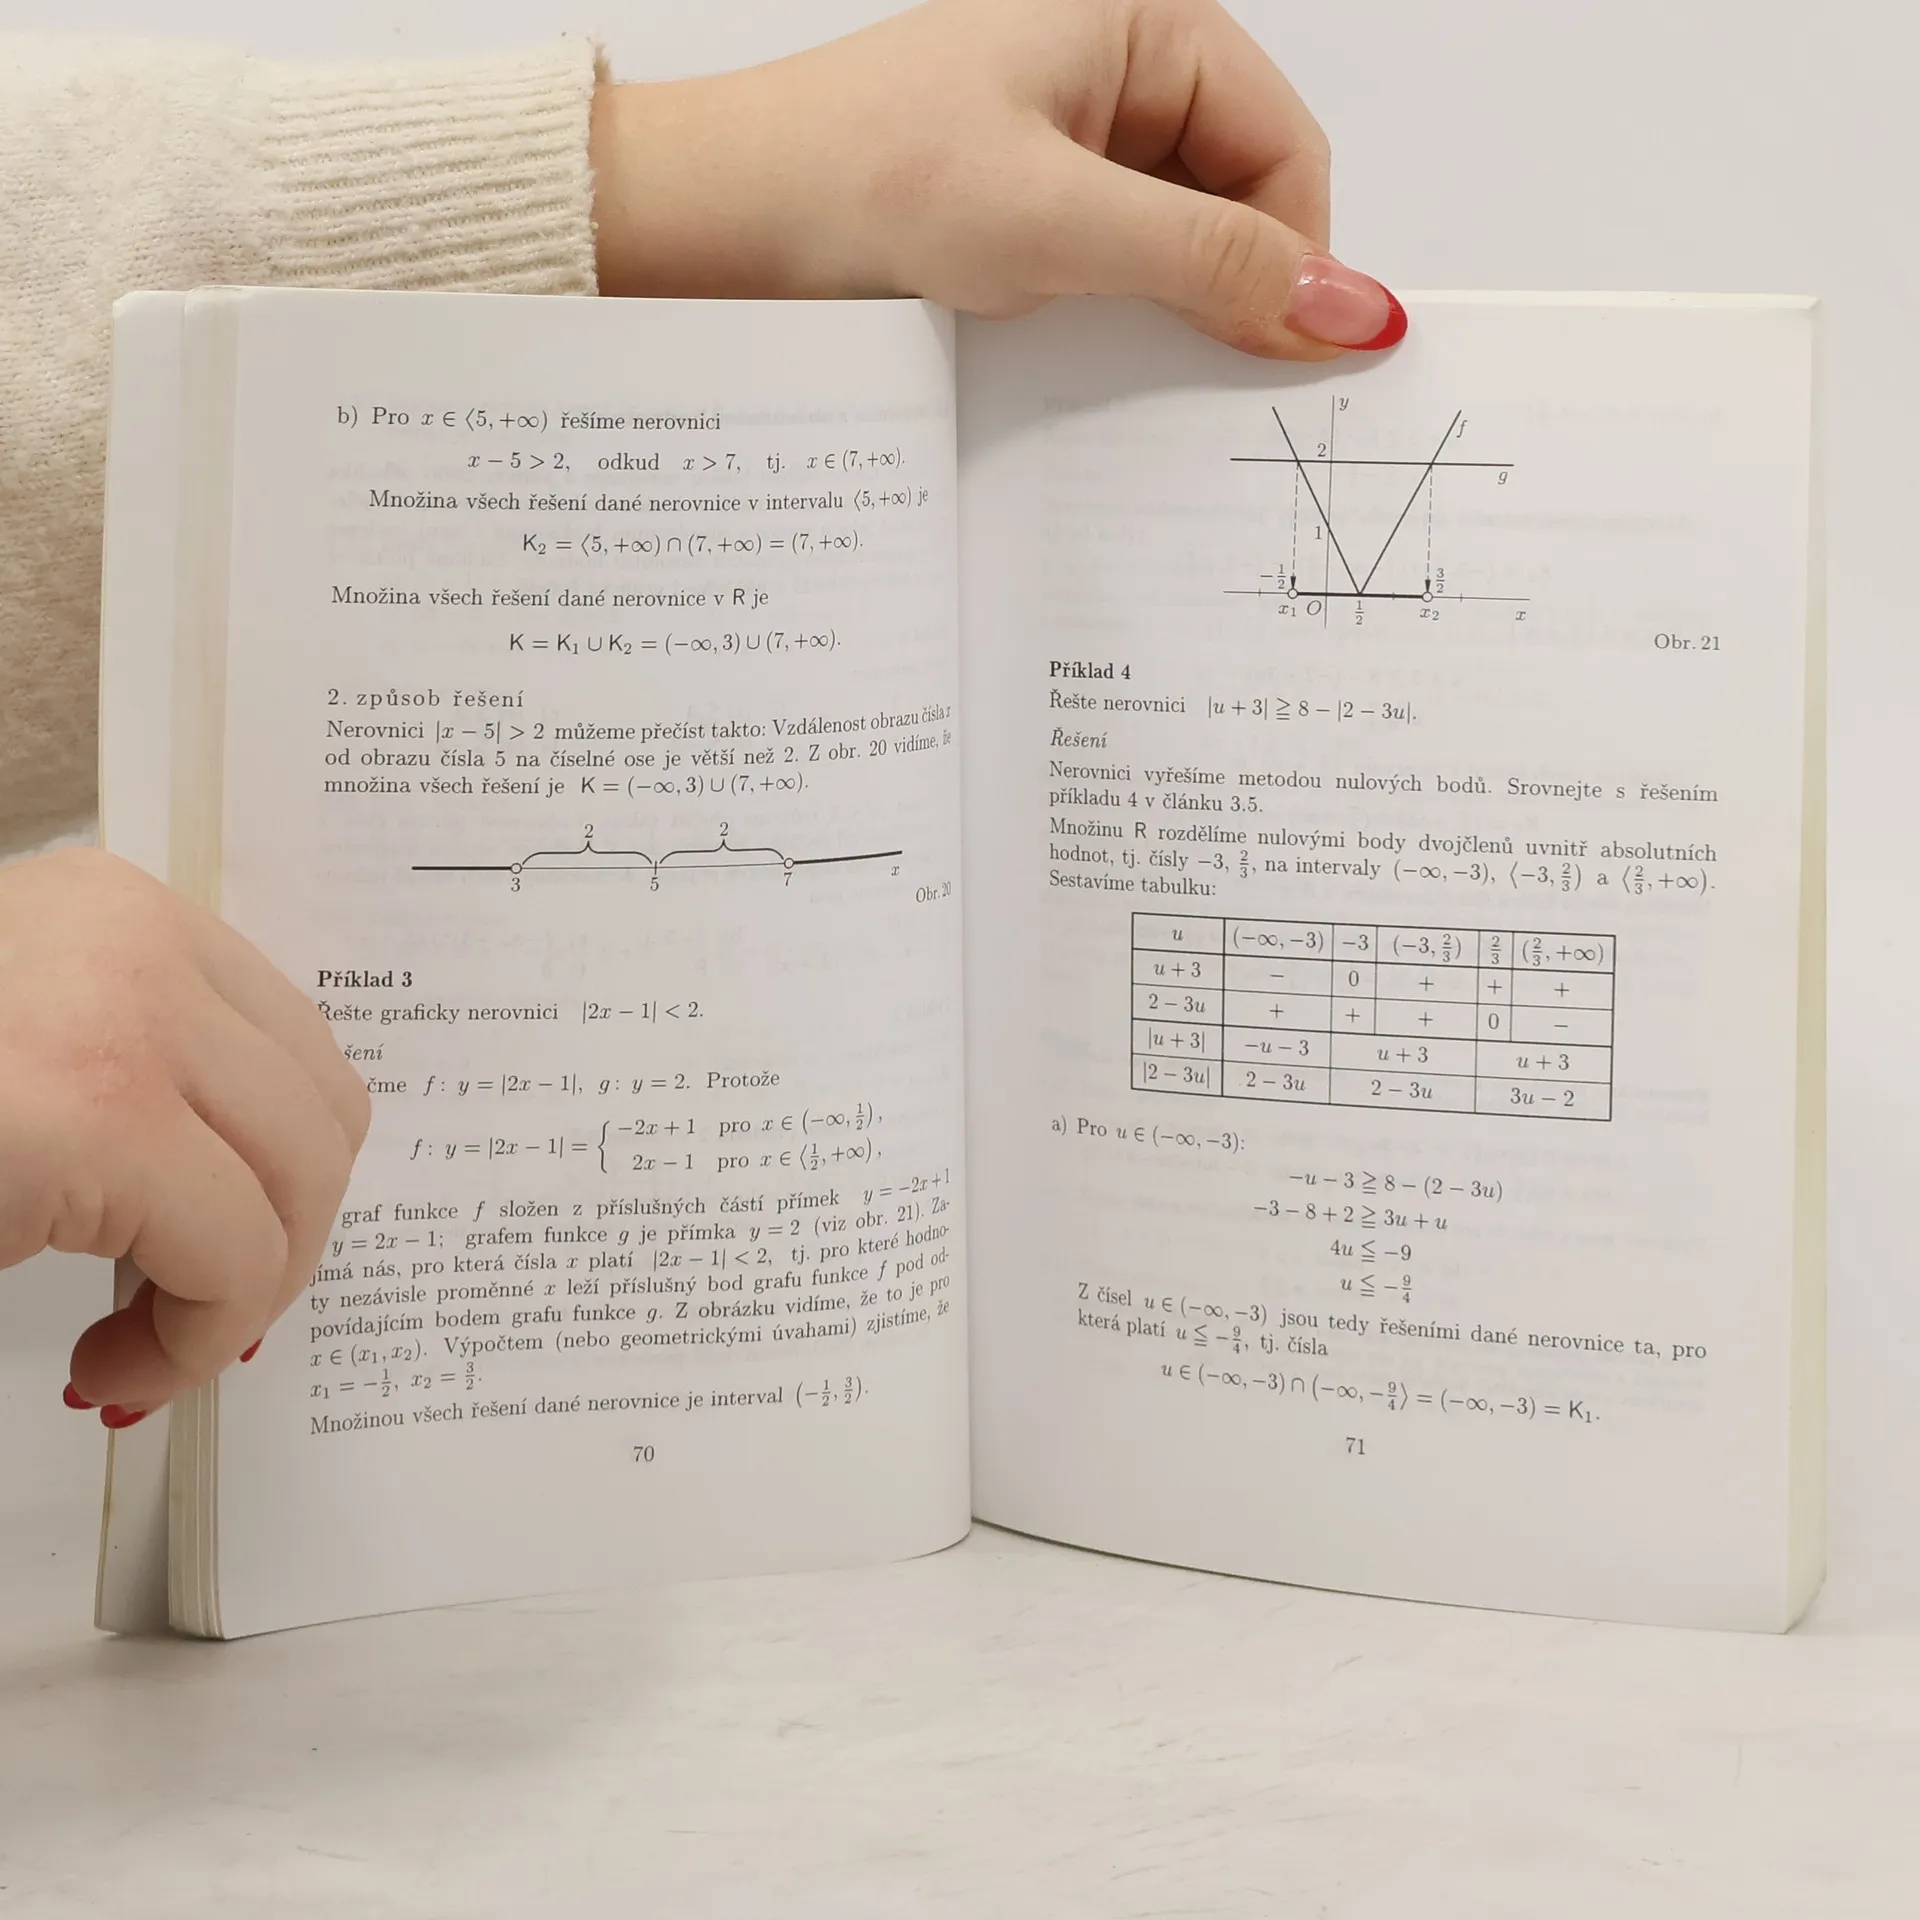 b) Pro x ∈ ⟨5, +∞) řešíme nerovnici
x − 5 > 2, odkud x > 7, tj. x ∈ (7, +∞).
Množina všech řešení dané nerovnice v intervalu ⟨5, +∞) je
K₂ = ⟨5, +∞) ∩ (7, +∞) = (7, +∞).
Množina všech řešení dané nerovnice v R je
K = K₁ ∪ K₂ = (−∞, 3) ∪ (7, +∞).
2. způsob řešení
Nerovnici |x − 5| > 2 můžeme přečíst takto: Vzdálenost obrazu čísla x
od obrazu čísla 5 na číselné ose je větší než 2. Z obr. 20 vidíme, že
množina všech řešení je K = (−∞, 3) ∪ (7, +∞).
2 2
3 5 7 x
Obr. 20
Příklad 3
Řešte graficky nerovnici |2x − 1| < 2.
šení
čme f: y = |2x − 1|, g: y = 2. Protože
f: y = |2x − 1| = { −2x + 1 pro x ∈ (−∞, 1/2),
2x − 1 pro x ∈ ⟨1/2, +∞),
graf funkce f složen z příslušných částí přímek y = −2x + 1
y = 2x − 1; grafem funkce g je přímka y = 2 (viz obr. 21). Za-
jímá nás, pro která čísla x platí |2x − 1| < 2, tj. pro které hodno-
ty nezávisle proměnné x leží příslušný bod grafu funkce f pod od-
povídajícím bodem grafu funkce g. Z obrázku vidíme, že to je pro
x ∈ (x₁, x₂). Výpočtem (nebo geometrickými úvahami) zjistíme, že
x₁ = −1/2, x₂ = 3/2.
Množinou všech řešení dané nerovnice je interval (−1/2, 3/2).
70
y
f
2
g
1
−1/2 3/2
x₁ O 1/2 x₂ x
Obr. 21
Příklad 4
Řešte nerovnici |u + 3| ≧ 8 − |2 − 3u|.
Řešení
Nerovnici vyřešíme metodou nulových bodů. Srovnejte s řešením
příkladu 4 v článku 3.5.
Množinu R rozdělíme nulovými body dvojčlenů uvnitř absolutních
hodnot, tj. čísly −3, 2/3, na intervaly (−∞, −3), ⟨−3, 2/3) a ⟨2/3, +∞).
Sestavíme tabulku:
u (−∞, −3) −3 (−3, 2/3) 2/3 (2/3, +∞)
u + 3 − 0 + + +
2 − 3u + + + 0 −
|u + 3| −u − 3 u + 3 u + 3
|2 − 3u| 2 − 3u 2 − 3u 3u − 2
a) Pro u ∈ (−∞, −3):
−u − 3 ≧ 8 − (2 − 3u)
−3 − 8 + 2 ≧ 3u + u
4u ≦ −9
u ≦ −9/4
Z čísel u ∈ (−∞, −3) jsou tedy řešeními dané nerovnice ta, pro
která platí u ≦ −9/4, tj. čísla
u ∈ (−∞, −3) ∩ (−∞, −9/4⟩ = (−∞, −3) = K₁.
71